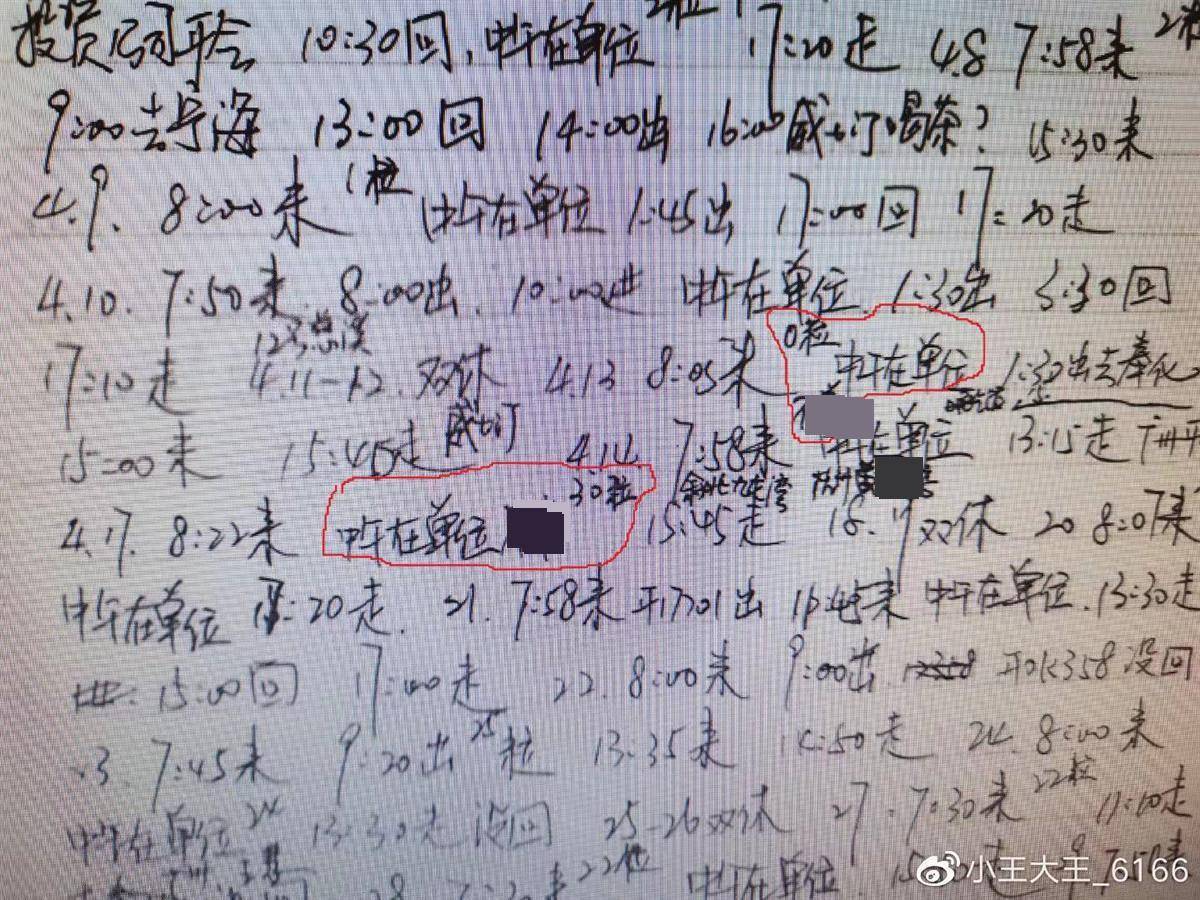 投资公司开会 10:30回,中午在单位 2粒 17:20走 4.8 7:58来
9:00去宁海 13:00回 14:00出 16:00 喝茶? 15:30来
4.9. 8:00来 1粒 中午在单位 1:45出 17:00回 17:20走
4.10. 7:50来. 8:00出. 10:00进 中午在单位. 1:30出 3:30回
17:10走 4.11-12.双休 4.13 8:05来 0粒 中午在单位 1:30出去奉化
15:00来 15:45走 4.14 7:58来 中午在单位 13:15走
4.17. 8:22来 中午在单位 30粒 15:45走 18.19双休 20 8:07来
中午在单位 :20走. 21. 7:58来 出 中午在单位.13:30走
15:00回 17:00走 22. 8:00来 9:00出 没回
3. 7:45来 9:20出 25粒 13:35来 14:50走 24. 8:00来
中午在单位 24 13:30走 没回 25-26双休 27. 7:30来 22粒 17:10走
28 22粒 中午在单位 7:58来
小王大王_6166